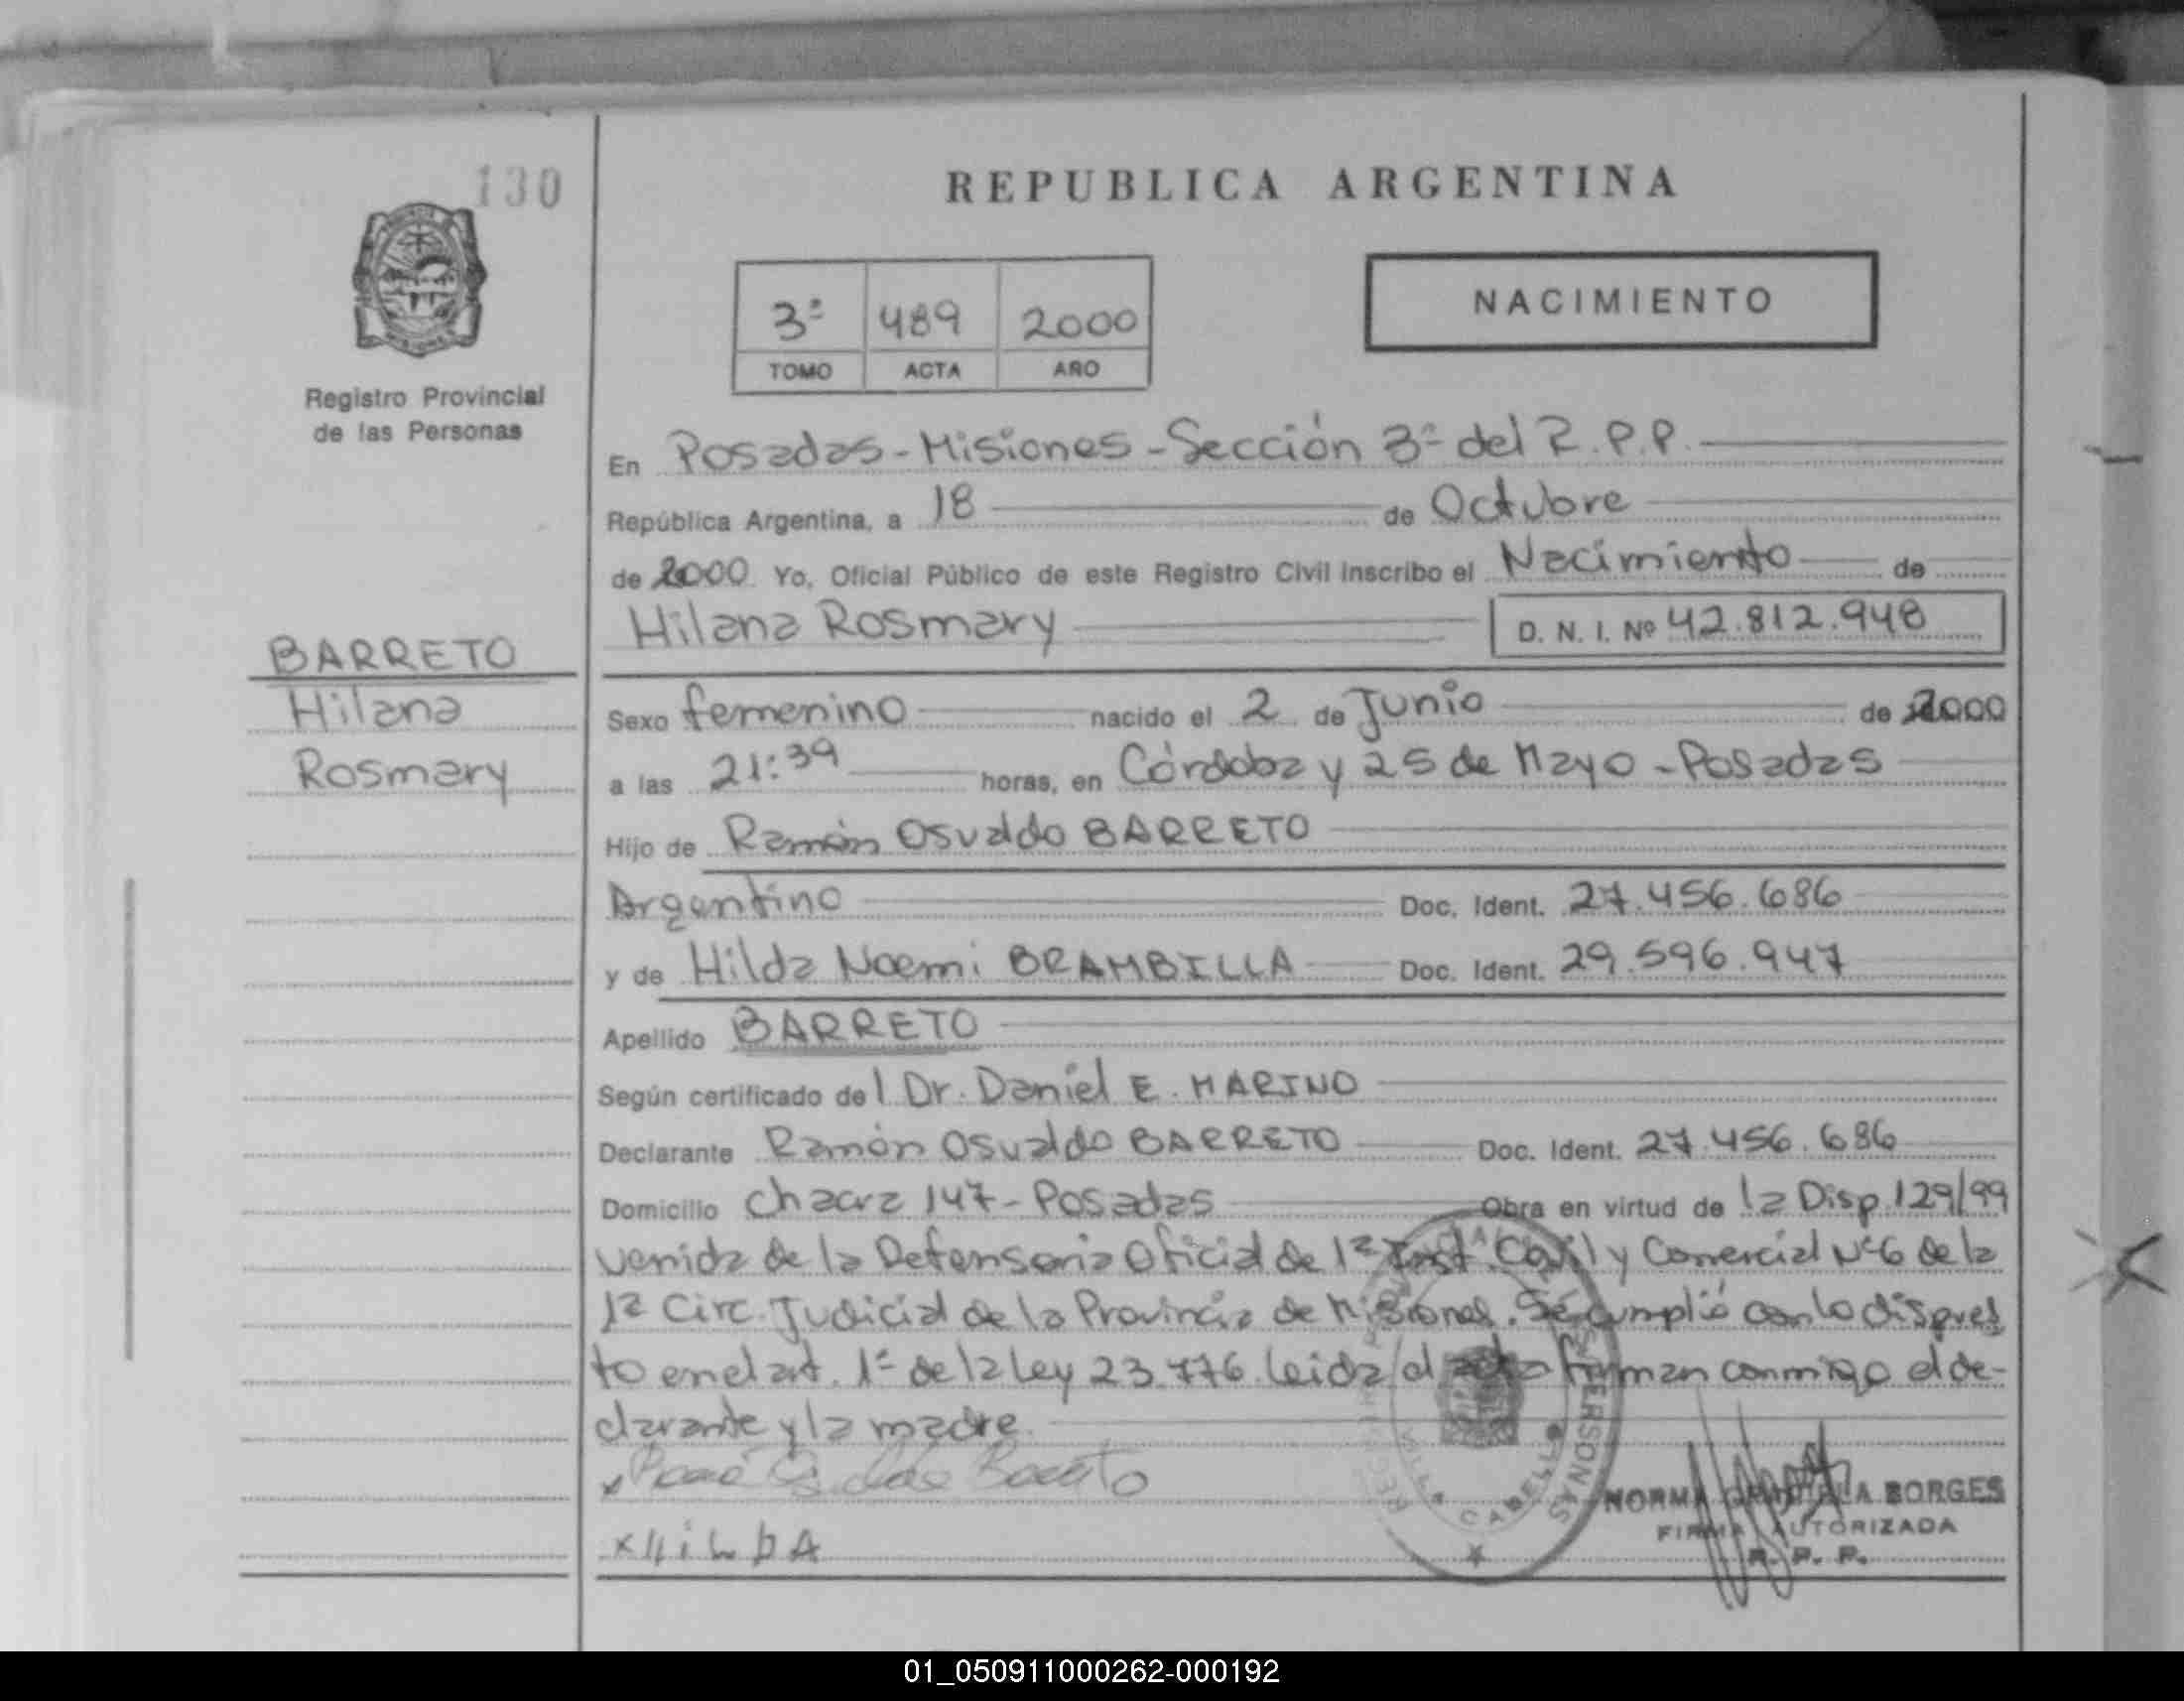 130
REPUBLICA ARGENTINA
NACIMIENTO
3ª 489 2000
TOMO ACTA AÑO
Registro Provincial
de las Personas
En Posadas - Misiones - Sección 3ª del R.P.P.
República Argentina, a 18 de Octubre
de 2000 Yo, Oficial Público de este Registro Civil inscribo el Nacimiento de
Hilana Rosmary D. N. I. Nº 42.812.948
BARRETO
Hilana
Rosmary
Sexo femenino nacido el 2 de Junio de 2000
a las 21:39 horas, en Córdoba y 25 de Mayo - Posadas
Hijo de Ramón Osvaldo BARRETO
Argentino Doc. Ident. 27.456.686
y de Hilda Noemi BRAMBILLA Doc. Ident. 29.596.947
Apellido BARRETO
Según certificado del Dr. Daniel E. MARINO
Declarante Ramón Osvaldo BARRETO Doc. Ident. 27.456.686
Domicilio Chacra 147 - Posadas Obra en virtud de la Disp. 129/99
venida de la Defensoria Oficial de 1ª Inst. Civil y Comercial Nº6 de la
1ª Circ. Judicial de la Provincia de Misiones. Se cumplió con lo dispues
to en el art. 1º de la Ley 23.776. Leida el acta firman conmigo el de-
clarante y la madre.
x Barreto
x HiLDA
VILLA CABELLO
PERSONAS
NORMA BORGES
FIRMA AUTORIZADA
R. P. P.
01_050911000262-000192